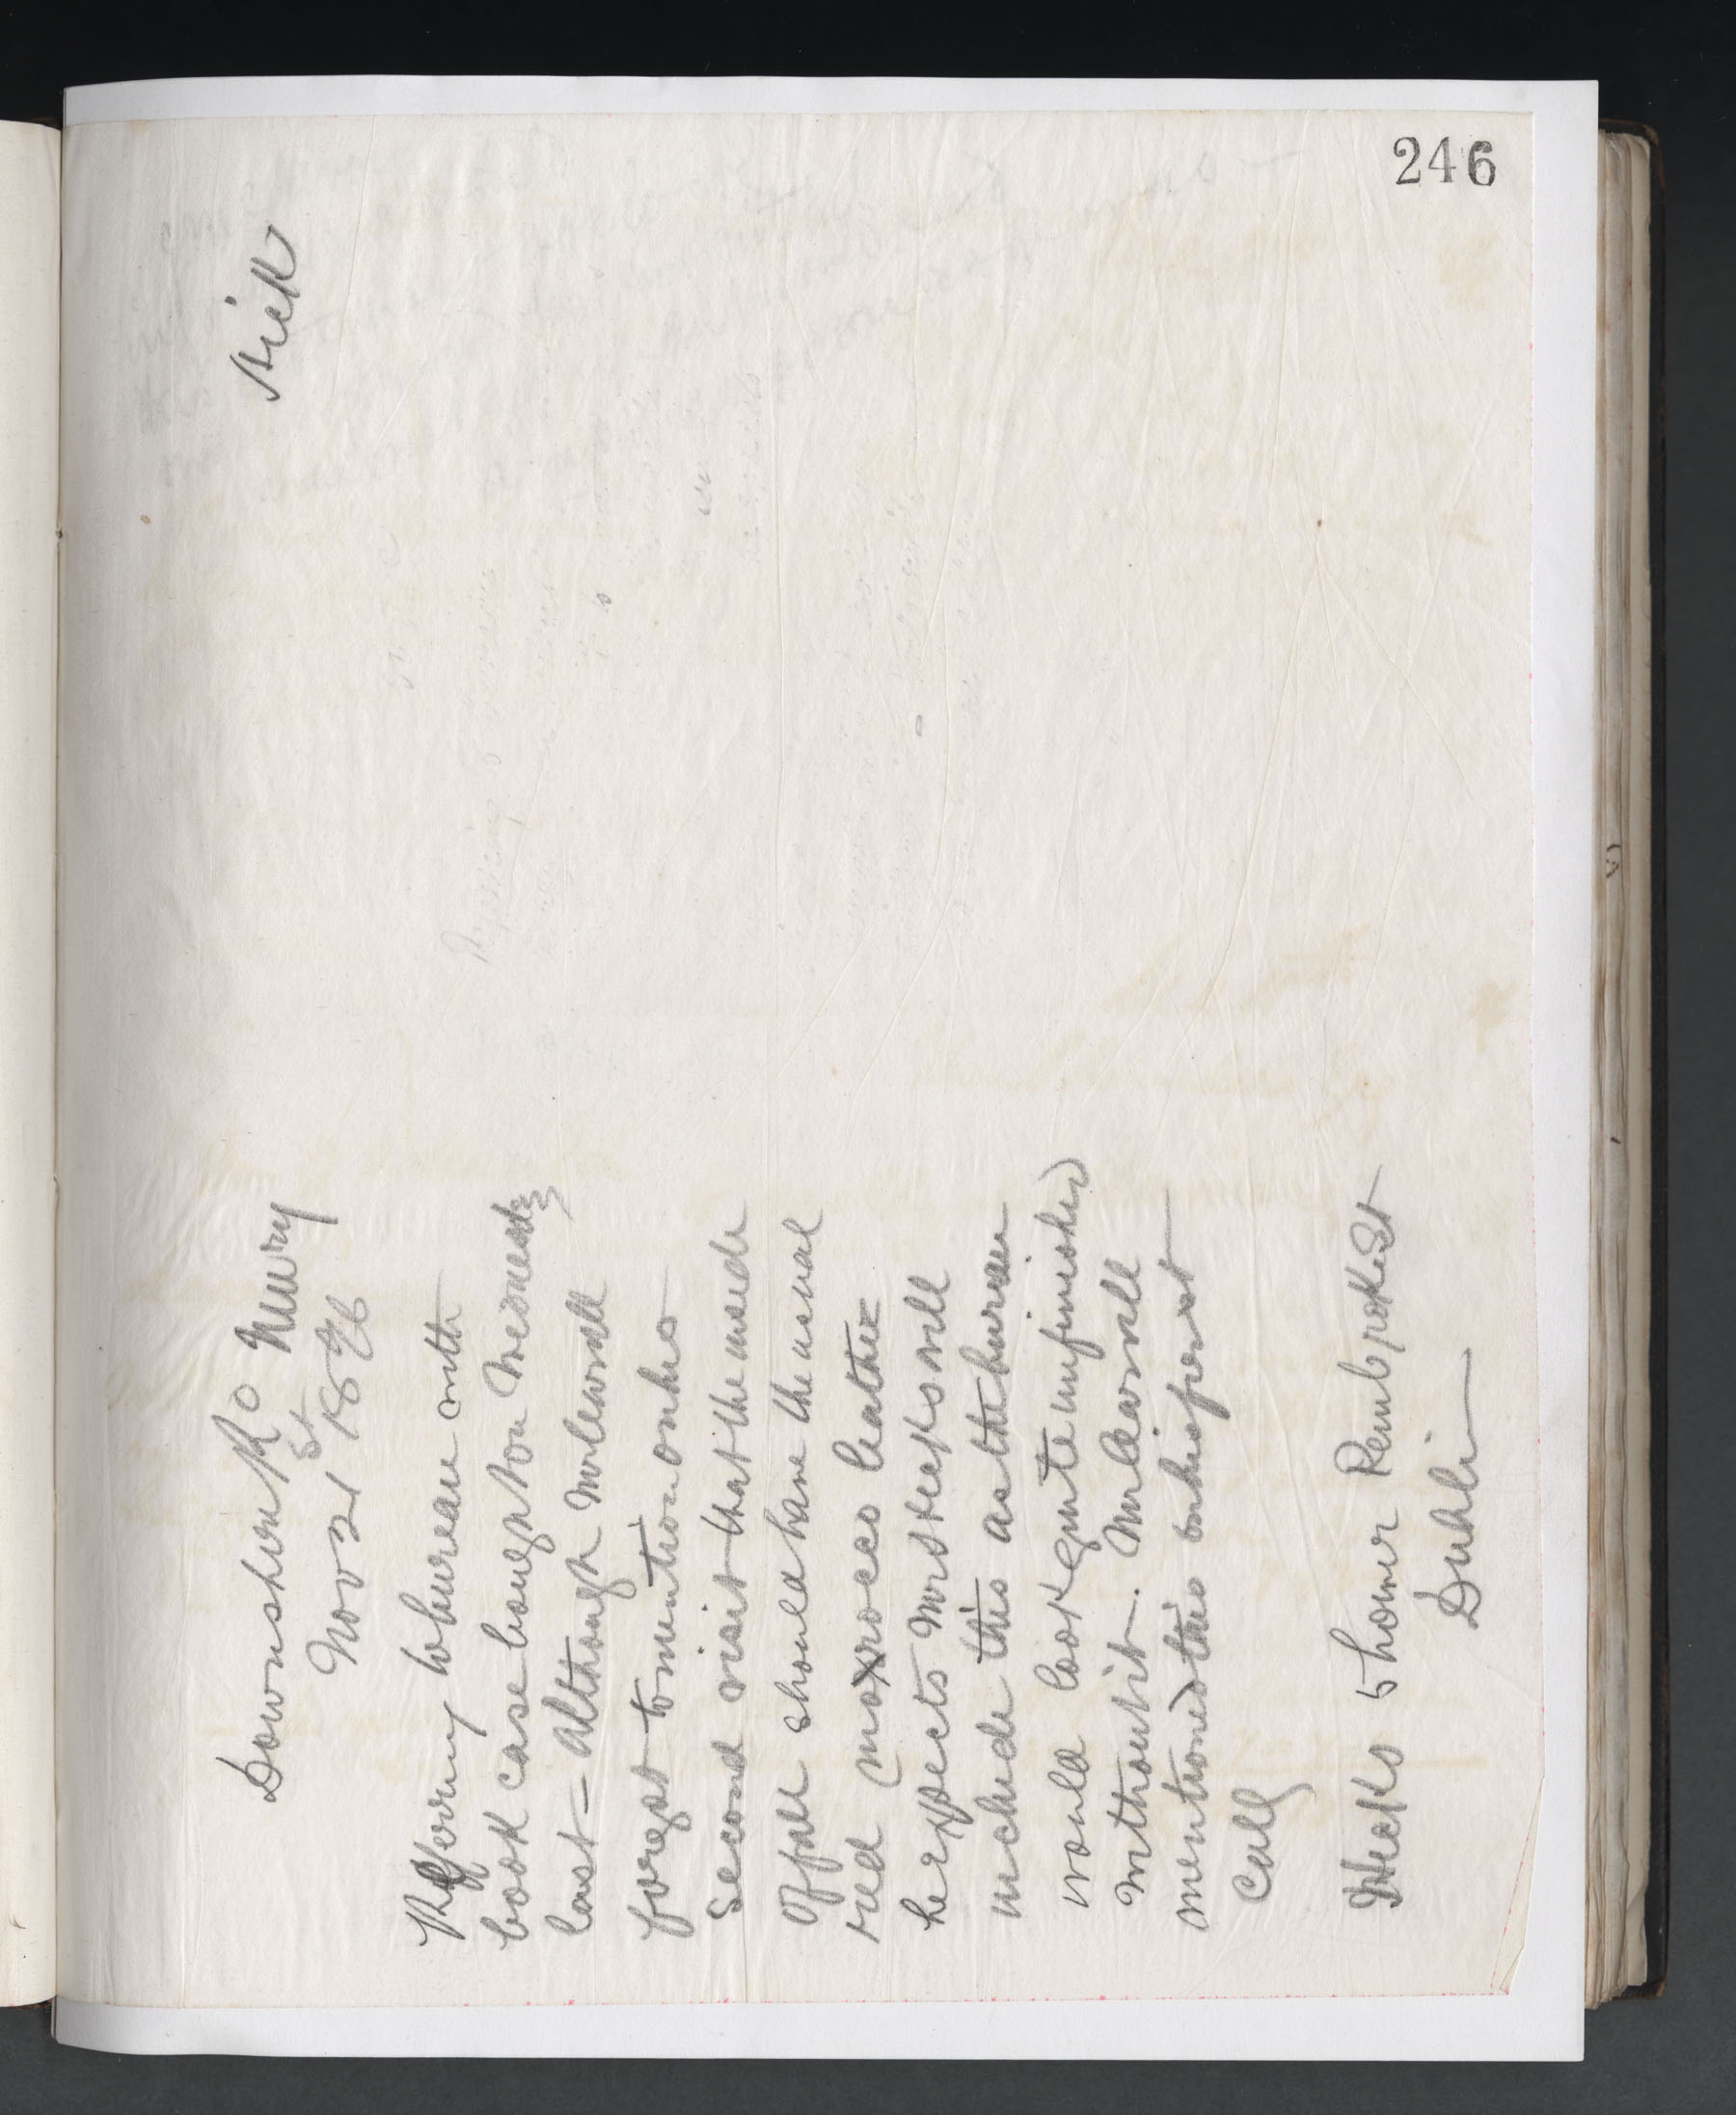 246
Downshire Rd Newry
Nov 21st 1896
Referring to bureau with
book case bought on Wednesday
last = Although Mr
forgot to mention on his
second visit that the inside
of fall should have the usual
red morocco leather =
he expects Mr Hicks will
include this as the bureau
would look quite unfinished
without it. Mr
mentioned this on his first
call
Hicks 5 Lower Pembroke St
Dublin